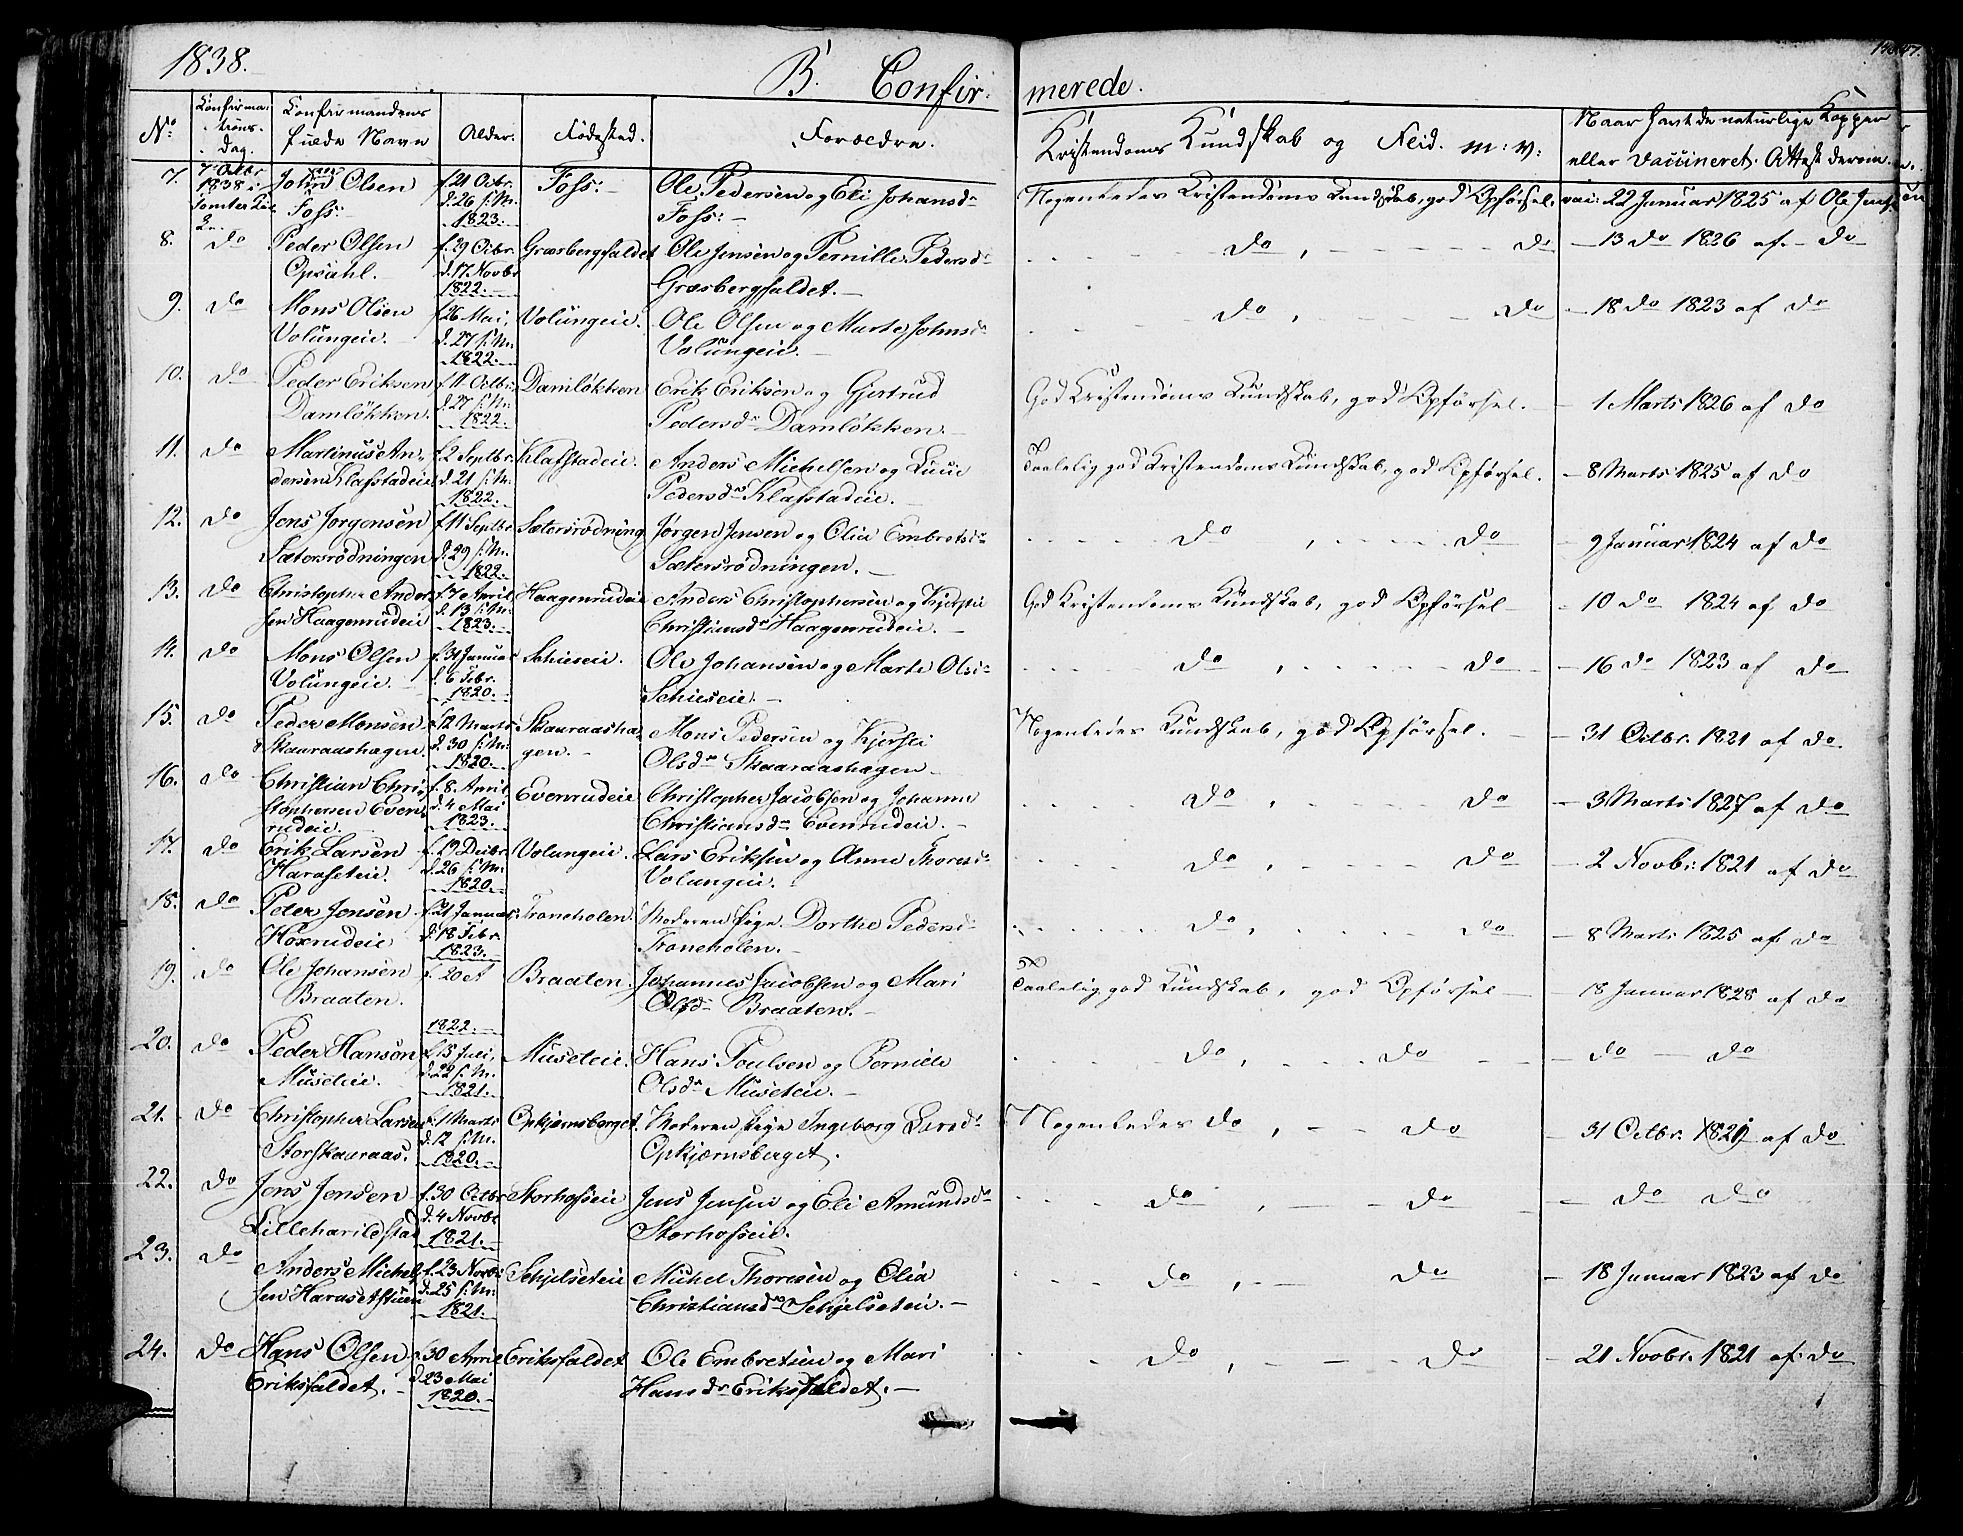 1838.
B. Confir- merede.
No. Confirma- tions- Dag. Confirmandens fulde Navn Alder. Fødested. Forældre. Kristendoms Kundskab og Flid. m: v: Naar havt de naturlige Kopper eller Vaccineret. Attest derom.
7. 7 Octbr 1838 i John Olsen f. 21 Octbr. Foss: Ole Pedersen og Eli Johansdr Nogenledes Kristendoms Kundskab, god Opførsel. vac: 22 Januar 1825 af Ole
Foss: d. 26 s. M. Foss: —
1823.
8. do Peder Olsen f. 29 Octbr. Græsbergfaldet Ole Jensen og Pernille Pedersdr do, do — 13 do 1826 af — do
Opsahl. d. 17 Novbr Græsbergfaldet. —
1822.
9. do Mons Olsen f. 26 Mai, Volungeie. Ole Olsen og Marte Johnsdr do, do — 18 do 1823 af do
Volungeie. d. 27 s. M. Volungeie. —
1822.
10. do Peder Eriksen f. 11 Octbr. Damløkken Erik Eriksen og Gjertrud God Kristendoms Kundskab, god Opførsel. — 1 Marts 1826 af do
Damløkken. d. 27 s. M. Pedersdr Damløkken. —
1822.
11. do Martinus An- f. 2 Septbr. Klafstadeie. Anders Michelsen og Lucie Taalelig god Kristendoms Kundskab, god Opførsel. — 8 Marts 1825 af do
dersen Klafstadeie d. 21 s. M. Pedersdr Klafstadeie.
1822.
12. do Jens Jørgensen f. 11 Septbr. Sætersrødning Jørgen Jensen og Olia Embretsdr do, do — 9 Januar 1824 af do
Sætersrødningen d. 29 s. M. Sætersrødningen. —
1822.
13. do Christopher Ander- f. 7 April Haagenrudeie Anders Christophersen og Kjersti God Kristendoms Kundskab, god Opførsel — 10 do 1824 af do
sen Haagenrudeie d. 13 s. M. Christiansdr Haagenrudeie. —
1823.
14. do Mons Olsen f. 31 Januar Schieseie. Ole Johansen og Marte Olsdr do, do — 16 do 1823 af do
Volungeie. d. 6 Febr. Schieseie. —
1820.
15. do Peder Monsen f. 12 Marts Skauraasha- Mons Pedersen og Kjersti Nogenledes Kundskab, god Opførsel. — 31 Octbr. 1821 af do.
Skauraashagen d. 30 s. M. gen. — Olsdr Skaaraashagen —
1820.
16. do Christian Chri- f. 8. April Evenrudeie Christopher Jacobsen og Johanne do, do — 3 Marts 1827 af do
stophersen Even- d. 4 Mai Christiansdr Evenrudeie. —
rudeie. 1823.
17. do Erik Larsen f. 19 Decbr. Volungeie. Lars Eriksen og Anne Thoresdr do, do — 2 Novbr. 1821 af do
Haraseteie. d. 26 s. M. Volungeie.
1820.
18. do Peter Jensen f. 21 Januar Troneholen. Moderen Pige Dorthe Pedersdr do, do — 8 Marts 1825 af do
d. 18 Febr. Troneholen. —
1823.
19. do Ole Johansen f. 20 Braaten. Johannes Jacobsen og Mari Taalelig god Kundskab, god Opførsel — 18 Januar 1828 af do
Braaten. Olsdr Braaten. —
1822.
20. do Peder Hansen f. 15 Juli, Museteie. Hans Poulsen og Pernille do, do — do — do
Museteie. d. 22 s. M. Olsdr Museteie. —
1821.
21. do Christopher Larsen f. 1 Marts Opkjærnsberget. Moderen Pige Ingeborg Larsdr Nogenledes do, — do — 31 Octbr. 1821 af do
Storskauraas. d. 12 s. M. Opkjærnsberget.
1820.
22. do Jens Jensen f. 30 Octbr. Storhofseie Jens Jensen og Eli Amundsdr do, do — do do
Lilleharildstad d. 4 Novbr Storhofseie.
1821.
23. do Anders Michel- f. 23 Novbr. Schjelseteie Michel Thoresen og Olia do, do — 18 Januar 1823 af do
sen d. 25 s. M. Christiansdr Schjelseteie. —
1821.
24. do Hans Olsen f. 30 April Eriksfaldet Ole Embretsen og Mari do, do — 21 Novbr. 1821 af do
Eriksfaldet. — d. 23 Mai Hansdr Eriksfaldet. —
1820.